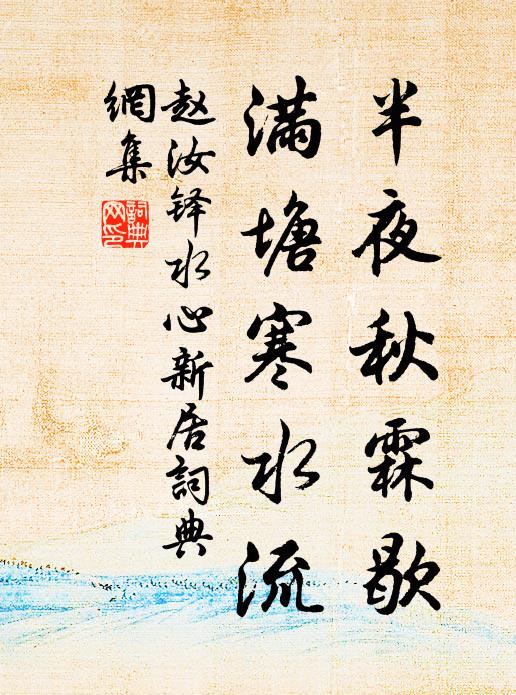 半夜秋霖歇
满塘寒水流
赵汝铎水心新居詞典
網集
詞典
网印